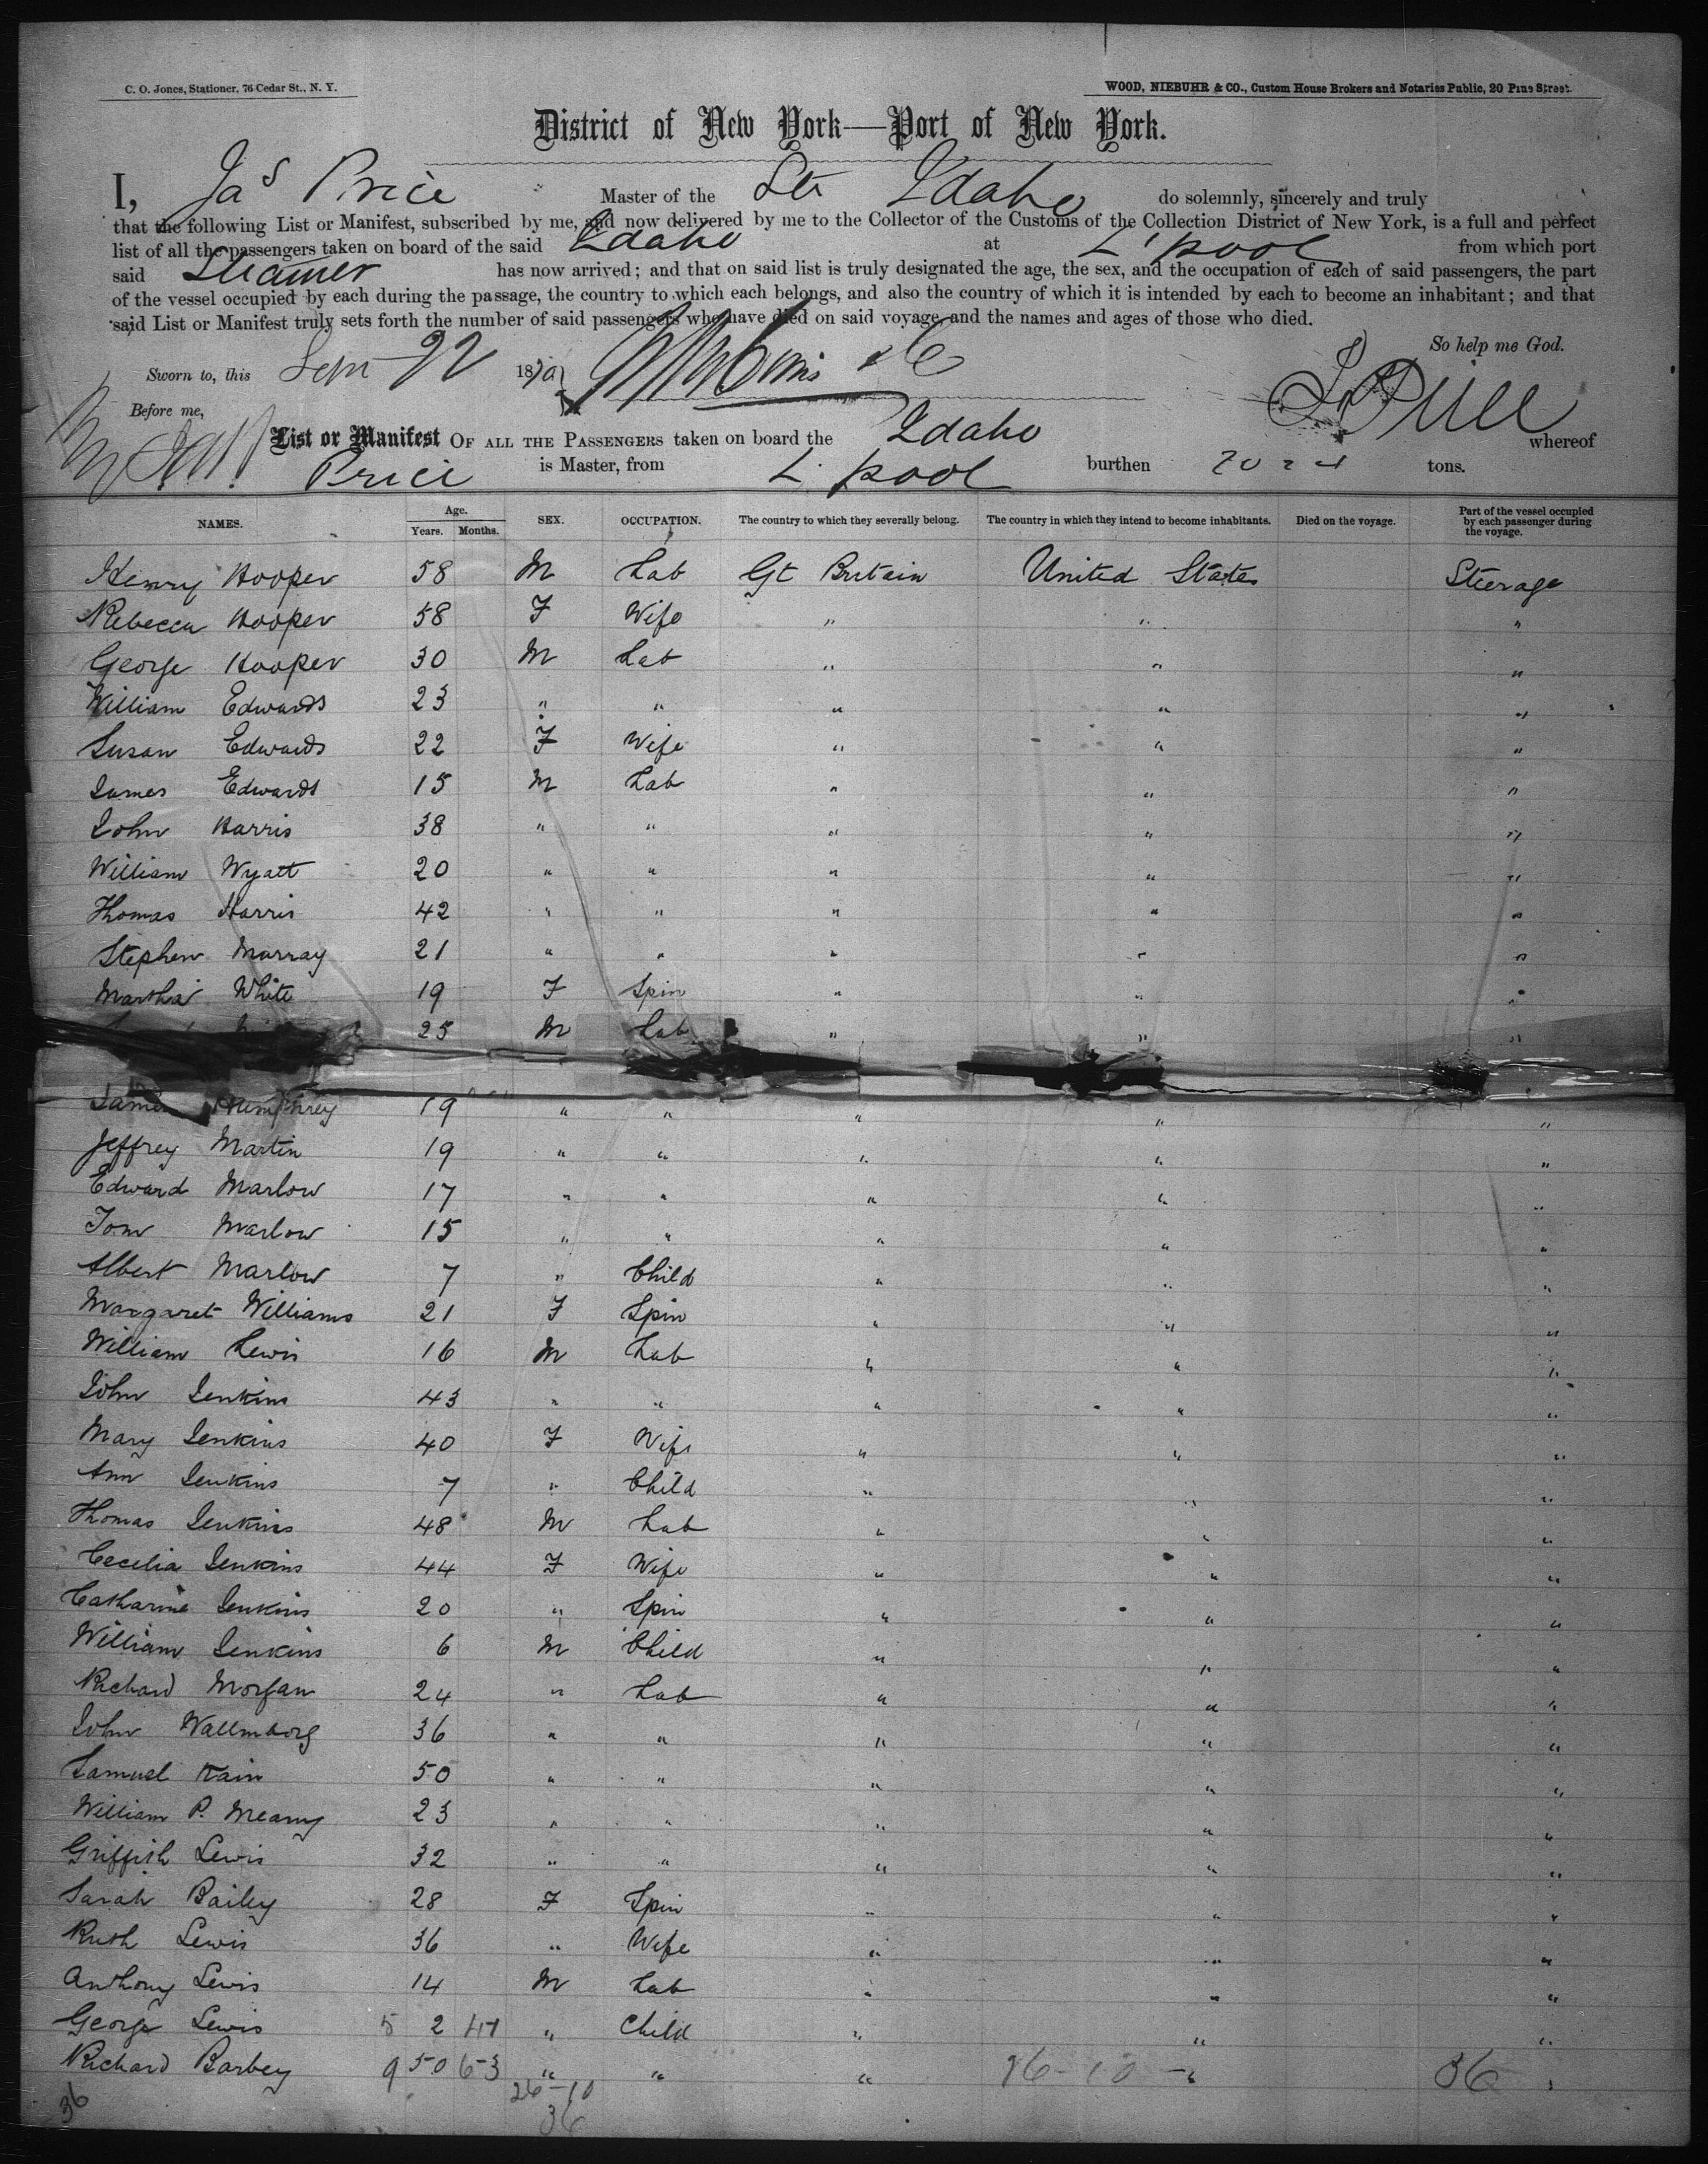 C. O. Jones, Stationer, 76 Cedar St., N. Y.
WOOD, NIEBUHR & CO., Custom House Brokers and Notaries Public, 20 Pine Street.
District of New York—Port of New York.
I, Jas Price Master of the Str Idaho do solemnly, sincerely and truly
that the following List or Manifest, subscribed by me, and now delivered by me to the Collector of the Customs of the Collection District of New York, is a full and perfect
list of all the passengers taken on board of the said Idaho at L'pool from which port
said Steamer has now arrived; and that on said list is truly designated the age, the sex, and the occupation of each of said passengers, the part
of the vessel occupied by each during the passage, the country to which each belongs, and also the country of which it is intended by each to become an inhabitant; and that
said List or Manifest truly sets forth the number of said passengers who have died on said voyage, and the names and ages of those who died.
So help me God.
Sworn to, this Sept 22 187
Before me,
List or Manifest OF ALL THE PASSENGERS taken on board the Idaho whereof
Price is Master, from L'pool burthen tons.
NAMES. Age. Years. Months. SEX. OCCUPATION. The country to which they severally belong. The country in which they intend to become inhabitants. Died on the voyage. Part of the vessel occupied by each passenger during the voyage.
Henry Hooper 58 M Lab Gt Britain United States Steerage
Rebecca Hooper 58 F Wife " " "
George Hooper 30 M Lab " " "
William Edwards 23 " " " " "
Susan Edwards 22 F Wife " " "
James Edwards 15 M Lab " " "
John Harris 38 " " " " "
William Wyatt 20 " " " " "
Thomas Harris 42 " " " " "
Stephen Murray 21 " " " " "
Martha White 19 F Spin " " "
25 M Lab " " "
James Humphrey 19 " " " " "
Jeffrey Martin 19 " " " " "
Edward Marlow 17 " " " " "
Tom Marlow 15 " " " " "
Albert Marlow 7 " Child " " "
Margaret Williams 21 F Spin " " "
William Lewis 16 M Lab " " "
John Jenkins 43 " " " " "
Mary Jenkins 40 F Wife " " "
Ann Jenkins 7 " Child " " "
Thomas Jenkins 48 M Lab " " "
Cecilia Jenkins 44 F Wife " " "
Catharine Jenkins 20 " Spin " " "
William Jenkins 6 M Child " " "
Richard Morgan 24 " Lab " " "
John Wallmborg 36 " " " " "
Samuel Kain 50 " " " " "
William P. Meany 23 " " " " "
Griffith Lewis 32 " " " " "
Sarah Bailey 28 F Spin " " "
Ruth Lewis 36 " Wife " " "
Anthony Lewis 14 M Lab " " "
George Lewis 5 2 " Child " " "
Richard Barbey 9 50 653 " " " 26-10 " 36 "
36 26-10
36